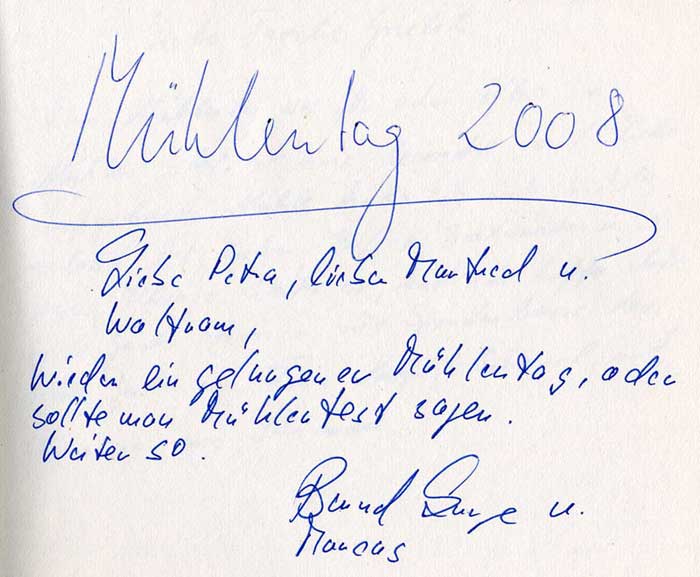 Mühlentag 2008
Liebe Petra, lieber Manfred u.
Waltram,
Wieder ein gelungener Mühlentag, oder
sollte man Mühlenfest sagen.
Weiter so.
Bernd u.
Marcus